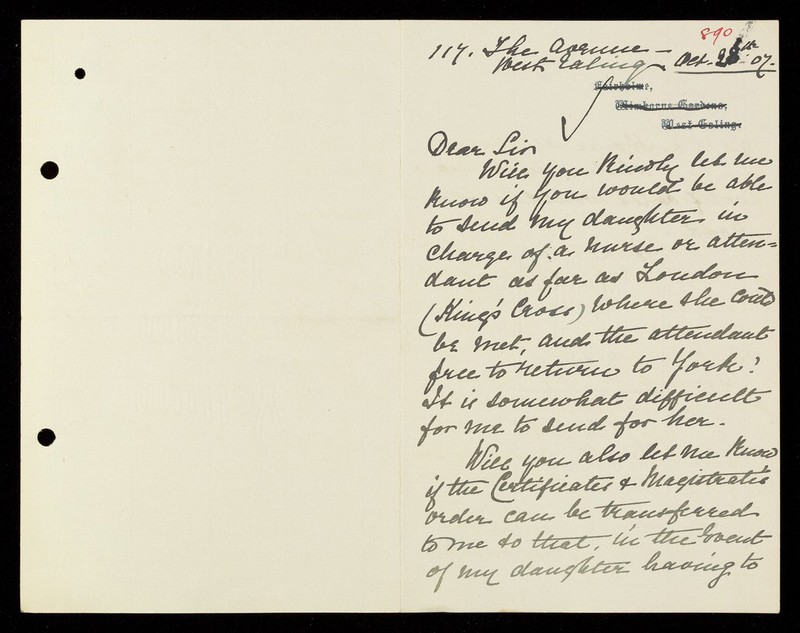 890
117. The Avenue —
West Ealing — Oct. 28th 07.
Fairholme,
Wimborne Gardens,
West Ealing.
Dear Sir
Will you kindly let me
know if you would be able
to send my daughter in
charge of a nurse or atten=
dant as far as London
(King's Cross) where she could
be met, and the attendant
free to return to York?
It is somewhat difficult
for me to send for her.
Will you also let me know
if the Certificates & Magistrate's
order can be transferred
to me so that, in the event
of my daughter having to